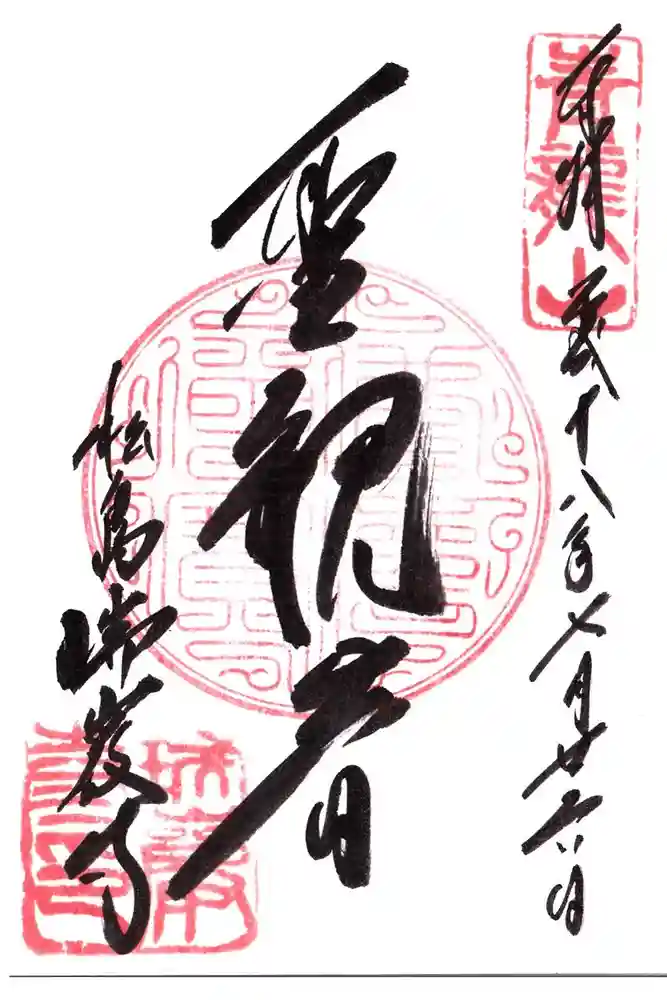 青龍山
奉拝 弐十八年七月廿六日
聖観音
松島瑞巌寺